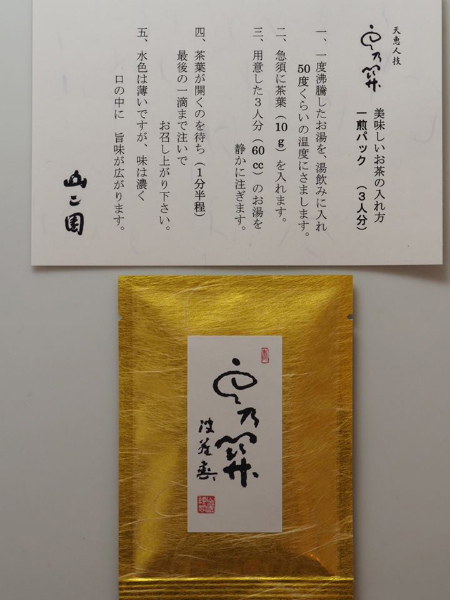 天恵人技
美味しいお茶の入れ方
一煎パック (3人分)
一、一度沸騰したお湯を、湯飲みに入れ
50度くらいの温度にさまします。
二、急須に茶葉(10 g)を入れます。
三、用意した3人分(60 cc)のお湯を
静かに注ぎます。
四、茶葉が開くのを待ち(1分半程)
最後の一滴まで注いで
お召し上がり下さい。
五、水色は薄いですが、味は濃く
口の中に 旨味が広がります。
山二園